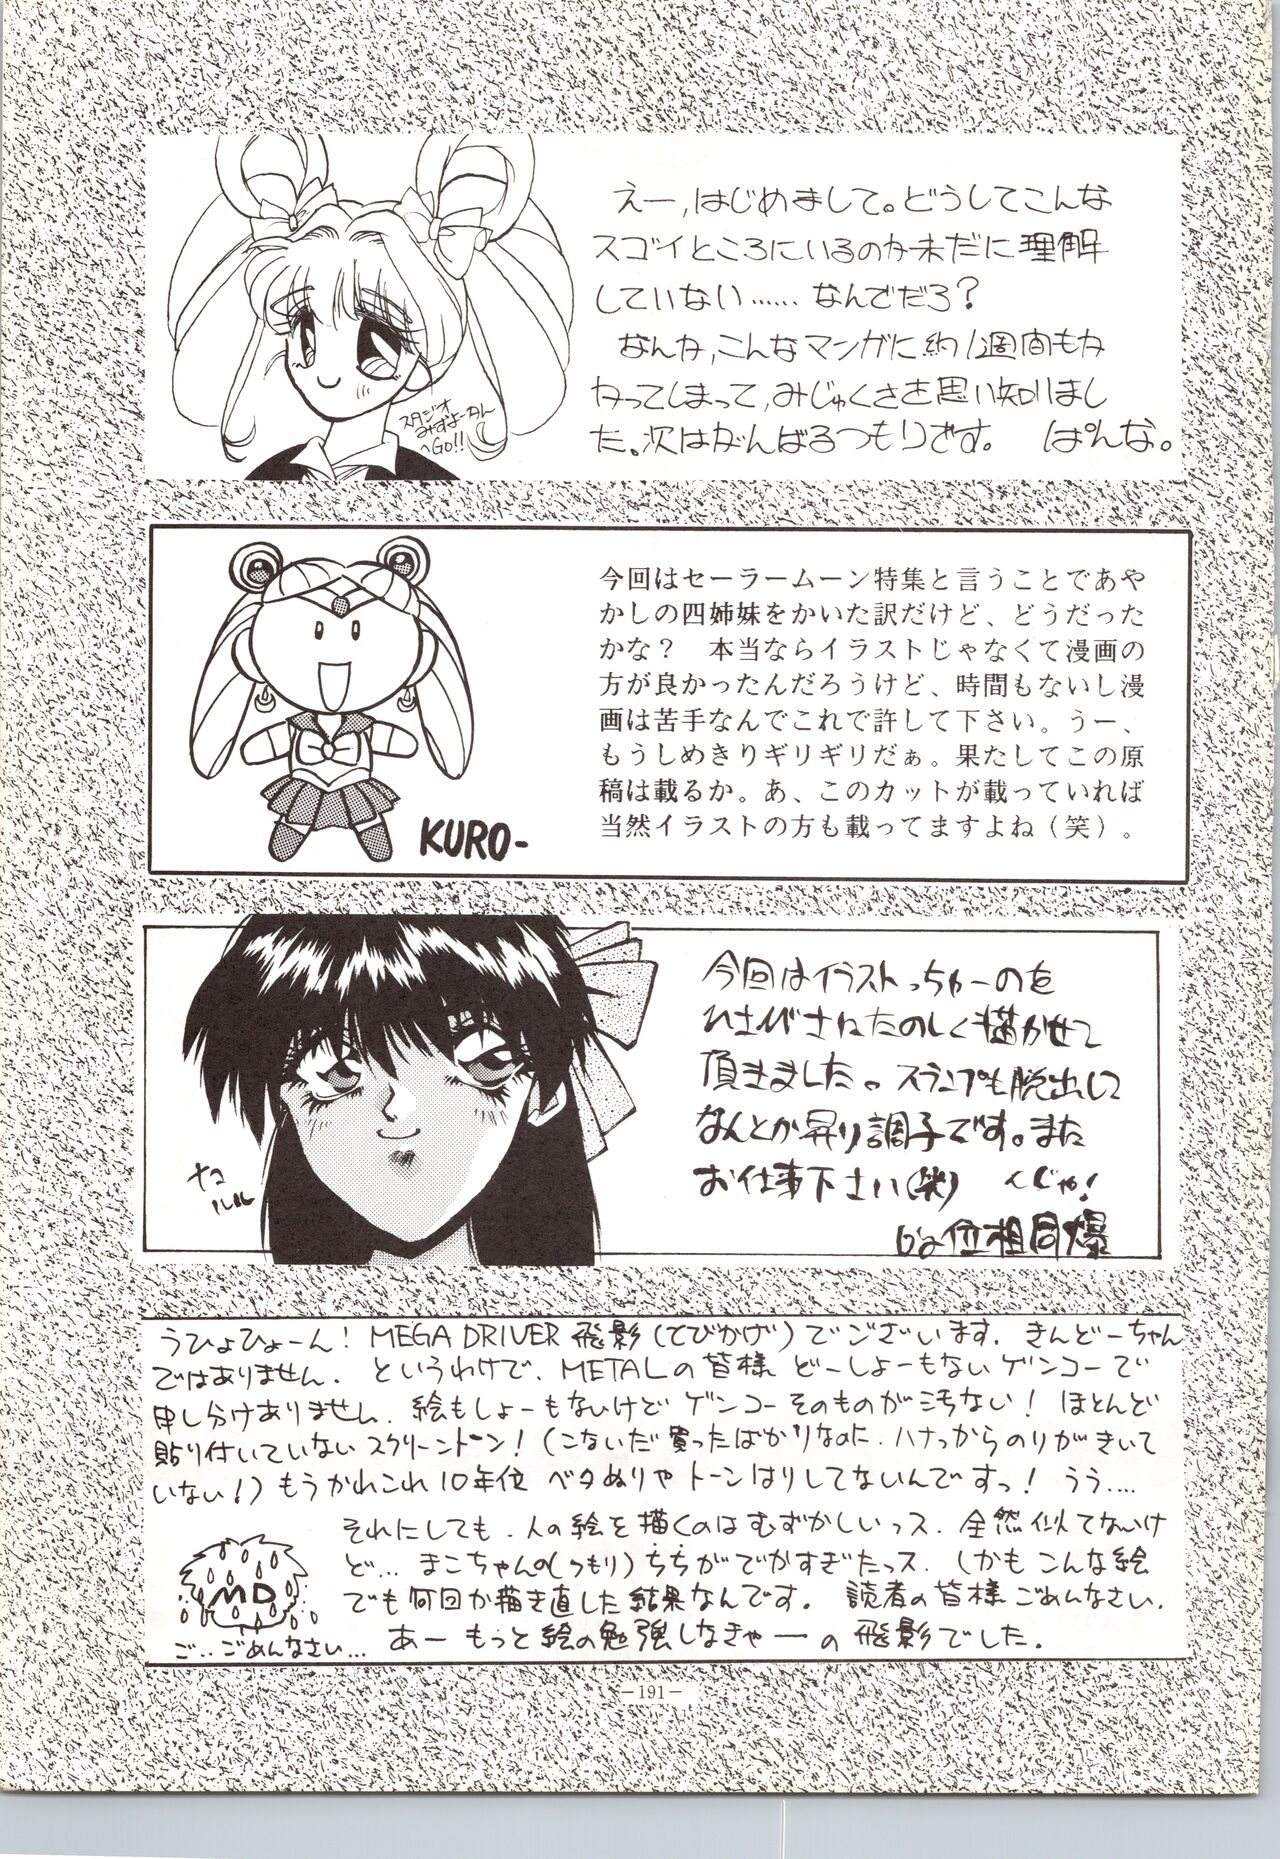 えー,はじめまして。どうしてこんな
スゴイところにいるのか未だに理解
していない……なんでだろ?
なんか,こんなマンガに約1週間もか
かってしまって,みじゅくさを思い知りまし
た。次はがんばるつもりです。 ぱんな。
スタジオ
みずよーかん
へGO!!
今回はセーラームーン特集と言うことであや
かしの四姉妹をかいた訳だけど、どうだった
かな? 本当ならイラストじゃなくて漫画の
方が良かったんだろうけど、時間もないし漫
画は苦手なんでこれで許して下さい。うー、
もうしめきりギリギリだぁ。果たしてこの原
稿は載るか。あ、このカットが載っていれば
当然イラストの方も載ってますよね(笑)。
KURO-
今回はイラストっちゅーのを
ひさびさねたのしく描かせて
頂きました。スランプも脱出して
なんとか昇り調子です。また
お仕事下さい(笑) くじゃ!
位相同爆
ナコ
ルル
うひょひょーん! MEGA DRIVER 飛影(とびかげ)でございます. きんどーちゃん
ではありません. というわけで、METALの皆様 どーしよーもないゲンコーで
申し分けありません. 絵もしょーもないけど ゲンコーそのものが汚ない! ほとんど
貼り付いていないスクリーントーン! (こないだ買ったばかりなのに. ハナっからのりがきいて
いない!) もうかれこれ10年位 ベタぬりやトーンはりしてないんですっ! うう....
それにしても. 人の絵を描くのはむずかしいっス. 全然似てないけ
ど... まこちゃんの(つもり)ちちがでかすぎたっス. しかもこんな絵
でも何回か描き直した結果なんです. 読者の皆様ごめんなさい.
あー もっと絵の勉強しなきゃー の 飛影でした.
MD
ご..ごめんなさい...
―191―